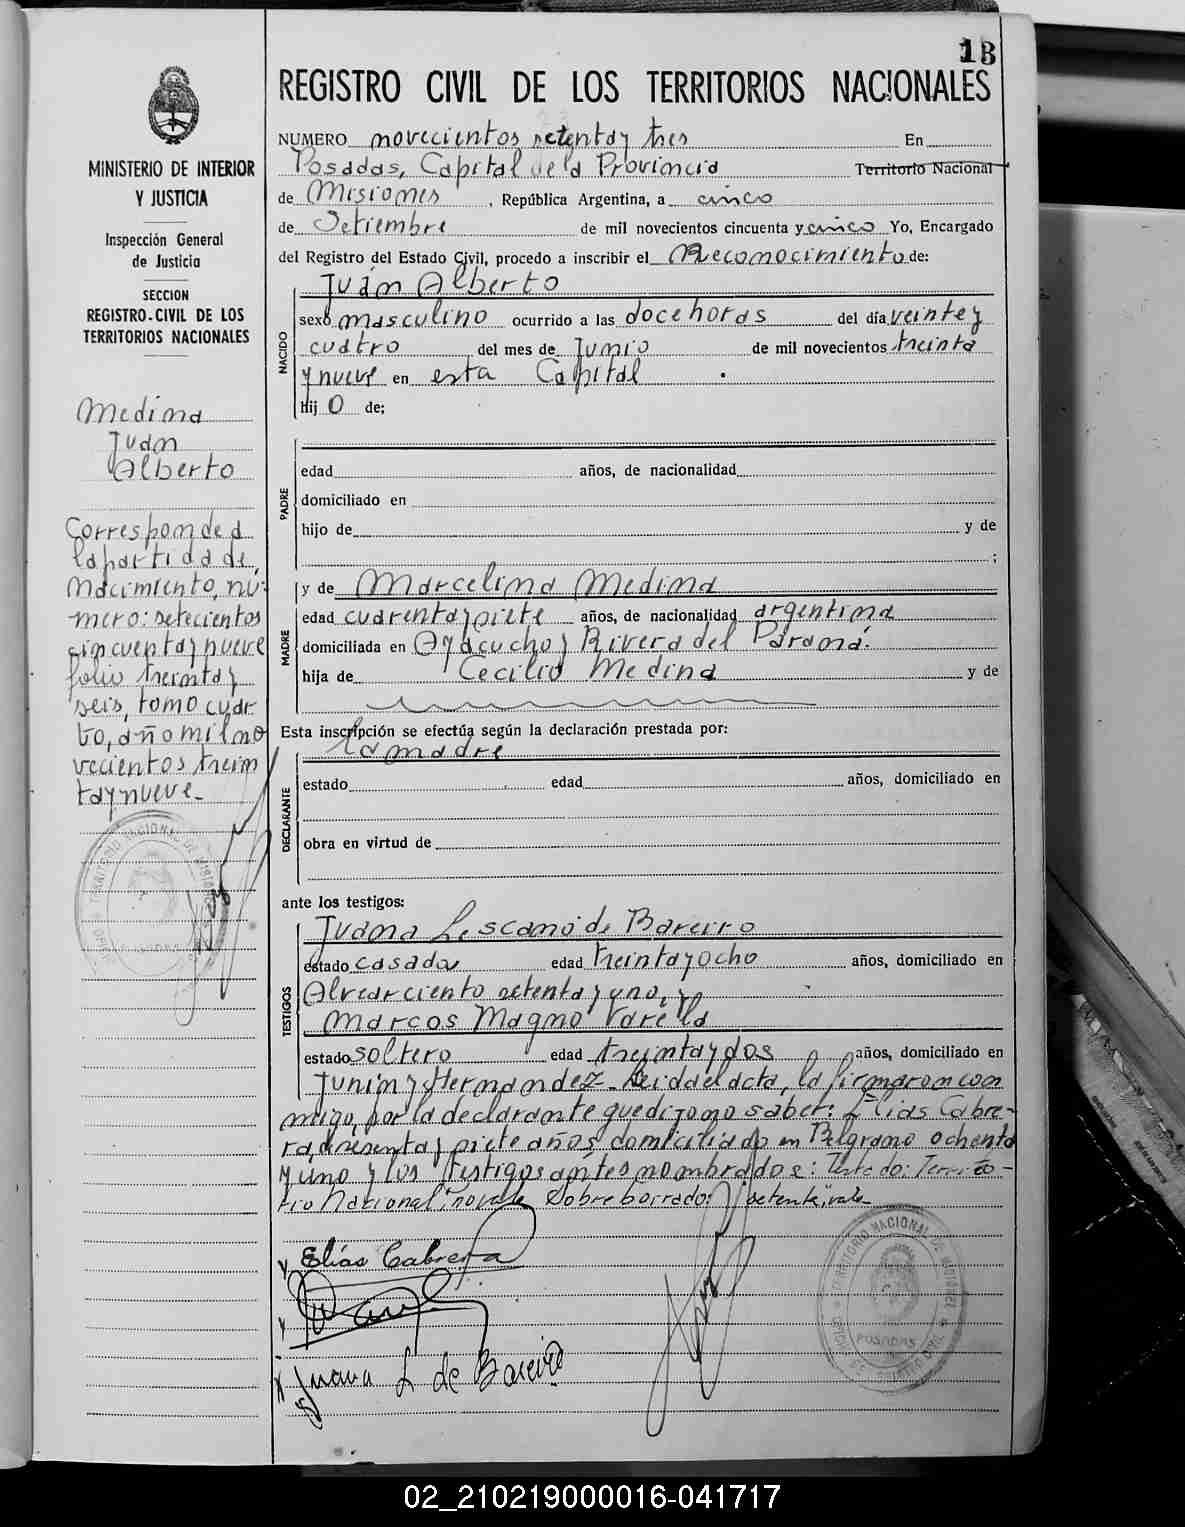 13
REGISTRO CIVIL DE LOS TERRITORIOS NACIONALES
MINISTERIO DE INTERIOR
Y JUSTICIA
Inspección General
de Justicia
SECCION
REGISTRO-CIVIL DE LOS
TERRITORIOS NACIONALES
Medina
Juan
Alberto
Corresponde a
la partida de
nacimiento, nú-
mero: setecientos
cincuenta y nueve
folio treinta y
seis, tomo cuar-
to, año mil no
vecientos trein
ta y nueve-
NUMERO novecientos setenta y tres En
Posadas, Capital de la Provincia Territorio Nacional
de Misiones, República Argentina, a cinco
de Setiembre de mil novecientos cincuenta y cinco Yo, Encargado
del Registro del Estado Civil, procedo a inscribir el Reconocimiento de:
Juan Alberto
NACIDO
sexo masculino ocurrido a las doce horas del día veinte y
cuatro del mes de Junio de mil novecientos treinta
y nueve en esta Capital.
Hij o de;
PADRE
edad años, de nacionalidad
domiciliado en
hijo de y de
;
y de Marcelina Medina
MADRE
edad cuarenta y siete años, de nacionalidad argentina
domiciliada en Ayacucho y Rivera del Paraná.
hija de Cecilio Medina y de
Esta inscripción se efectúa según la declaración prestada por:
la madre
DECLARANTE
estado edad años, domiciliado en
obra en virtud de
ante los testigos:
Juana Lescano de Bareiro
TESTIGOS
estado casada edad treinta y ocho años, domiciliado en
Alvear ciento setenta y uno, y
Marcos Magno Varela
estado soltero edad treinta y dos años, domiciliado en
Junin y Hernandez- Leida el acta, la firmaron con
migo, por la declarante que dijo no saber: Elias Cabre-
ra, de sesenta y siete años, domiciliado en Belgrano ochenta
y uno y los testigos antes nombrados: Testado: Territo-
rio Nacional", no vale Sobre borrado: "setenta", vale-
Elías Cabrera
Juana L de Bareiro
TERRITORIO NACIONAL DE MISIONES
POSADAS
02_210219000016-041717